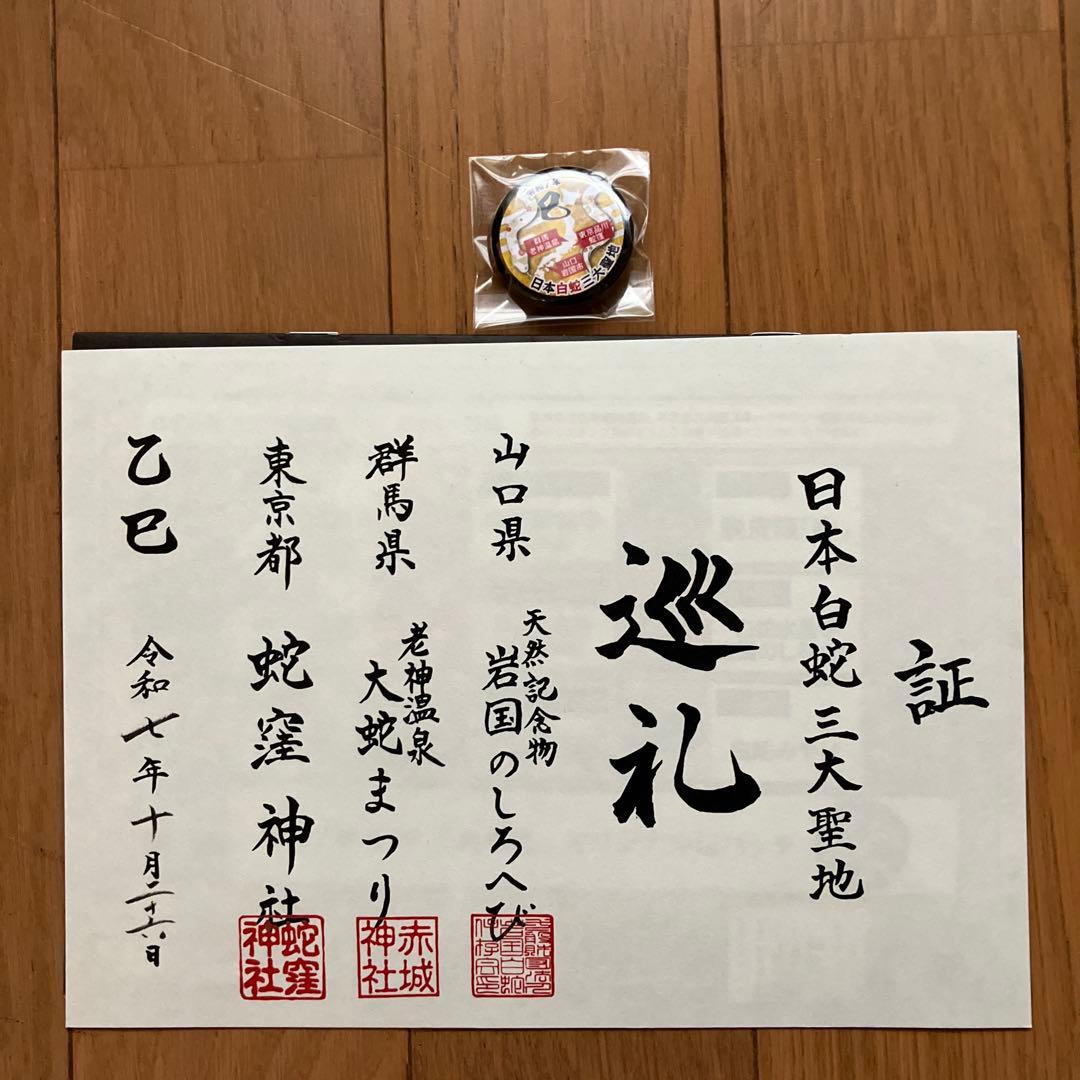 巳
群馬
老神温泉
東京品川
蛇窪
山口
岩国市
日本白蛇三大聖地
証
日本白蛇三大聖地
巡礼
山口県
天然記念物
岩国のしろへび
群馬県
老神温泉
大蛇まつり
赤城
神社
東京都
蛇窪神社
蛇窪
神社
乙巳
令和七年十月二十六日